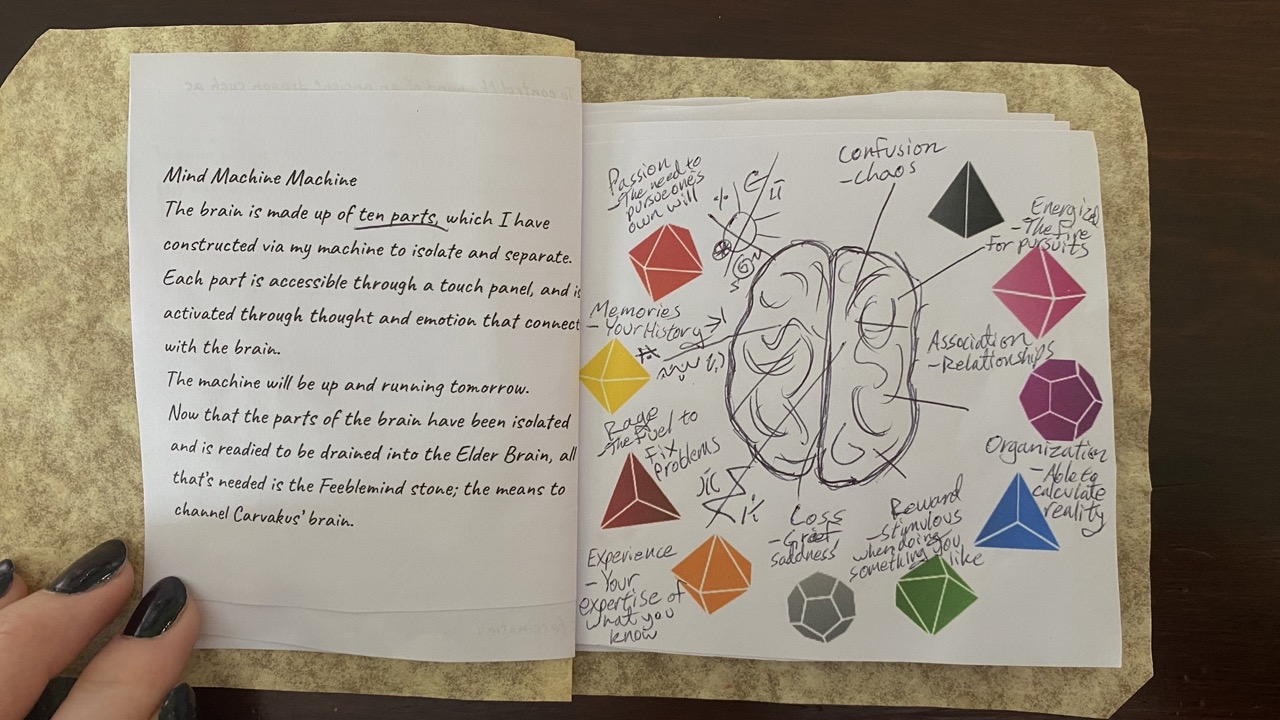 Mind Machine Machine
The brain is made up of ten parts, which I have
constructed via my machine to isolate and separate.
Each part is accessible through a touch panel, and is
activated through thought and emotion that connect
with the brain.
The machine will be up and running tomorrow.
Now that the parts of the brain have been isolated
and is readied to be drained into the Elder Brain, all
that's needed is the Feeblemind stone; the means to
channel Carvakus' brain.
Passion
- The need to
pursue one's
own will
Confusion
- chaos
Energized
- The fire
for pursuits
Memories
- Your History
Association
- Relationships
Rage
- The fuel to
fix
problems
Organization
- Able to
calculate
reality
Loss
- Grief,
saddness
Reward
- stimulous
when doing
something you
like
Experience
- Your
expertise of
what you
know